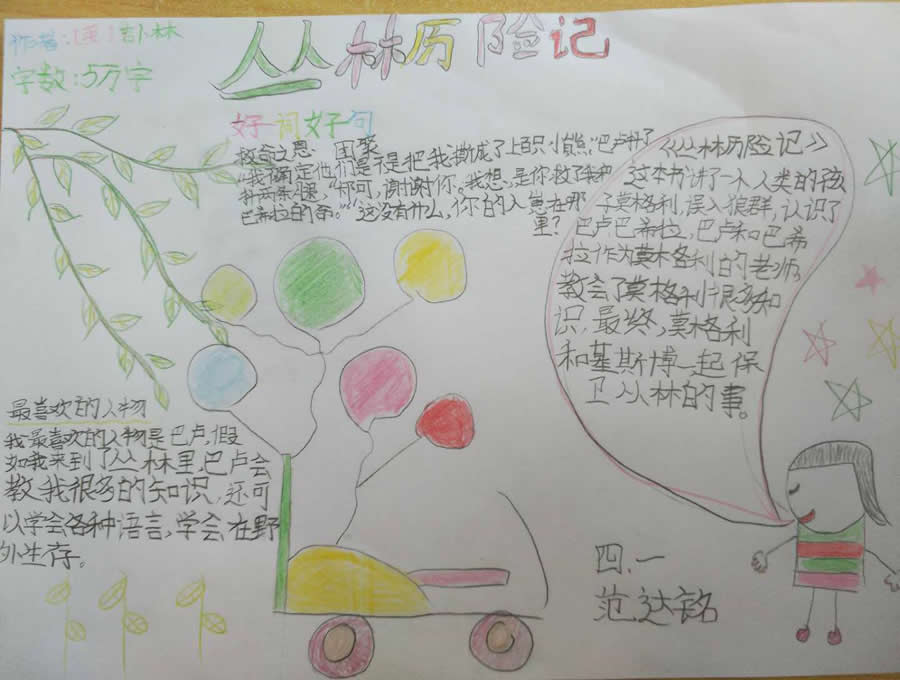 丛林历险记
作者:(英)吉卜林
字数:5万字
好词好句
救命之恩、团聚
“我确定他们是不是把我
了上百只小熊”巴卢
两条腿,“哪可,谢谢你。我想,是你救了我和
巴希拉的命。”“这没有什么,你的人崽在哪
里?
《丛林历险记》
这本书讲了一个人类的孩
子莫格利,误入狼群,认识了
巴卢巴希拉,巴卢和巴希
拉作为莫格利的老师,
教会了莫格利很多知
识,最终,莫格利
和基斯博一起保
卫丛林的事。
最喜欢的人物
我最喜欢的人物是巴卢,假
如我来到了丛林里,巴卢会
教我很多的知识,还可
以学会各种语言,学会在野
外生存。
四.一
范达铭